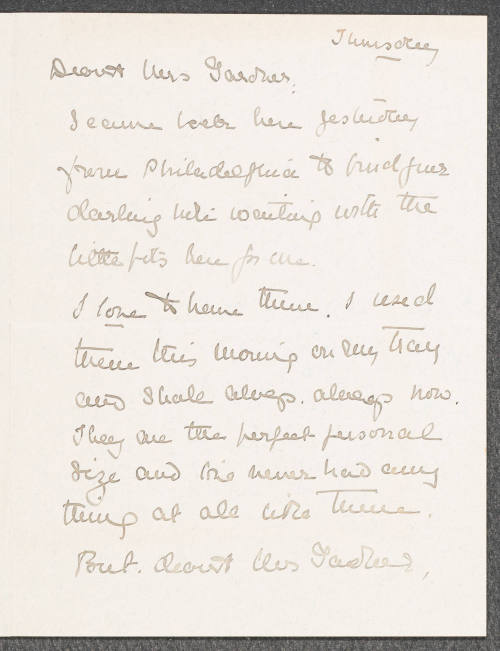 Thursday
Dearest Mrs Gardner,
I came back here yesterday
from Philadelphia to find your
darling note waiting with the
little pots here for me.
I love to have them. I used
them this morning on my tray
and shall always, always now.
They are the perfect personal
size and I've never had any
thing at all like them.
But, dearest Mrs Gardner,